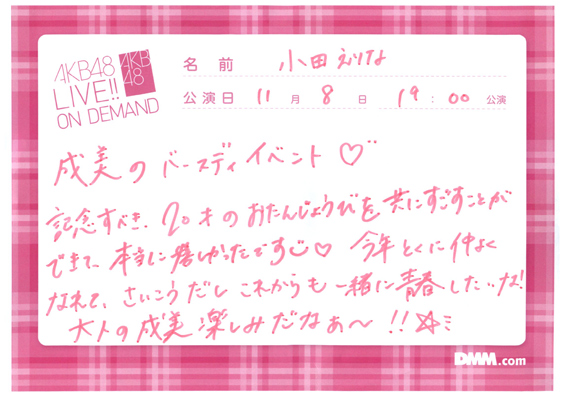 AKB48
LIVE!!
ON DEMAND
AKB
48
名前 小田えりな
公演日 11月8日 19:00公演
成美のバースディイベント♡
記念すべき、20才のおたんじょうびを共にすごすことが
できて、本当に嬉しかったです♡ 今年とくに仲よく
なれて、さいこうだし これからも一緒に青春したいな!
大人の成美楽しみだなぁ〜!!☆ミ
DMM.com